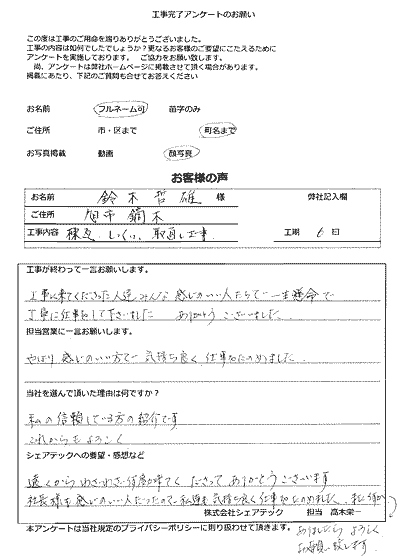 工事完了アンケートのお願い
この度は工事のご用命を賜りありがとうございました。
工事の内容は如何でしたでしょうか?更なるお客様のご要望にこたえるために
アンケートを実施しております。 ご協力をお願い致します。
尚、アンケートは弊社ホームページに掲載させて頂く場合があります。
掲載にあたり、下記のご質問も合せてお答えください
お名前 フルネーム可 苗字のみ
ご住所 市・区まで 町名まで
お写真掲載 動画 顔写真
お客様の声
お名前 鈴木哲雄 様 弊社記入欄
ご住所 旭市 鏑木
工事内容 棟瓦、しっくい、取直し工事 工期 6 日
工事が終わって一言お願いします。
工事に来てくださった人達みんな感じのいい人たちで一生懸命で
丁寧に仕事をして下さいました ありがとうございました。
担当営業に一言お願いします。
やはり感じのいい方で 気持ち良く仕事をたのめました
当社を選んで頂いた理由は何ですか?
私の信頼している方の紹介です
これからもよろしく
シェアテックへの要望・感想など
遠くからわざわざ何度か来てくださって ありがとうございます
社長様も感じのいい人だったので私達も気持ち良く仕事をたのめました。又何か
株式会社シェアテック 担当 高木栄一
本アンケートは当社規定のプライバシーポリシーに則り扱わせて頂きます。
ありましたら よろしく
お願い致します